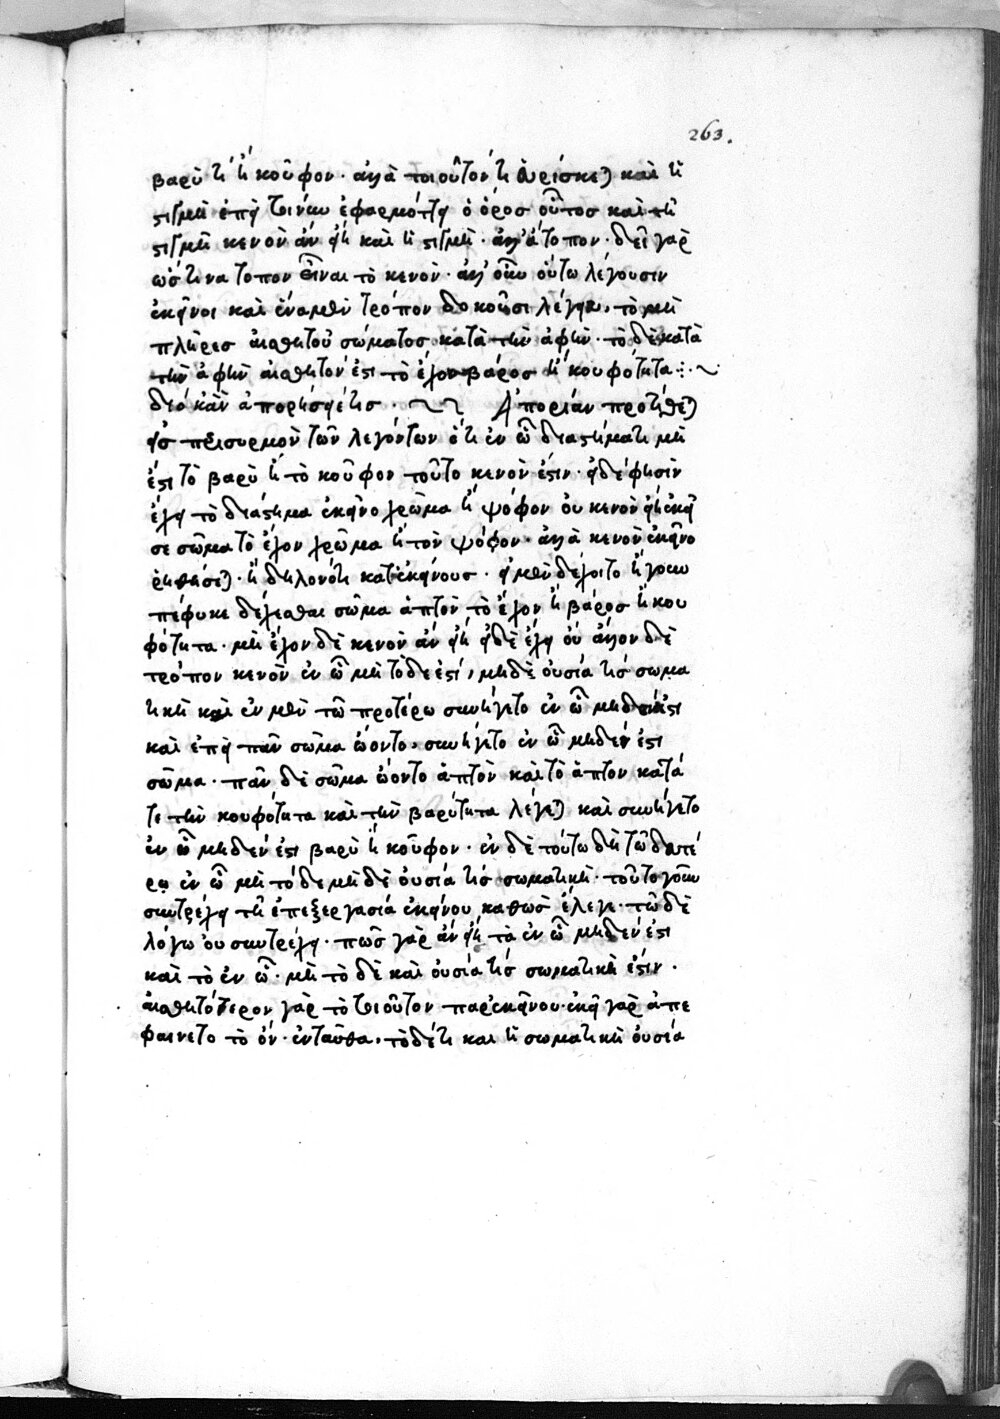 263.
βαρύ τι ἢ κοῦφον · ἀλλὰ τοιοῦτόν τι εὑρίσκεται καὶ ἡ
στιγμὴ ἐπεὶ τοίνυν ἐφαρμόττει ὁ ὅρος οὗτος καὶ τῆ
στιγμῆ κενὸν ἂν εἴη καὶ ἡ στιγμὴ · ἀλλ' ἄτοπον · δεῖ γὰρ
τόπον εἶναι τὸ κενὸν · ἀλλ' οὖν οὕτω λέγουσιν
ἐκεῖνοι καὶ ἕνα μὲν τρόπον δοκοῦσι λέγειν, τὸ μὴ
πλῆρες αἰσθητοῦ σώματος κατὰ τὴν ἁφὴν · τὸ δὲ κατὰ
τὴν ἁφὴν αἰσθητόν ἐστι τὸ ἔχον βάρος ἢ κουφότητα
διὸ κἂν ἀπορήσειέ τις · Ἀπορίαν προτίθεται
εἰς τῶν λεγόντων ὅτι ἐν ᾧ διαστήματι μὴ
ἔστι τὸ βαρὺ ἢ τὸ κοῦφον τοῦτο κενόν ἐστιν · εἰ δέ φησιν
ἔχει τὸ διάστημα ἐκεῖνο χρῶμα ἢ ψόφον οὐ κενὸν
σῶμα τὸ ἔχον χρῶμα ἢ τὸν ψόφον · ἀλλὰ κενὸν ἐκεῖνο
ῥηθήσεται · ἢ δηλονότι κατ' ἐκείνους · εἰ μὲν δέχοιτο ἤγουν
πέφυκε δέχεσθαι σῶμα ἁπτὸν τὸ ἔχον ἢ βάρος ἢ κου
φότητα · μὴ ἔχον δὲ κενὸν ἂν εἴη εἰ δὲ ἔχει οὔ ἄλλον δὲ
τρόπον κενὸν ἐν ᾧ μὴ τόδε ἐστί, μηδὲ οὐσία τις σωμα
τικὴ καὶ ἐν μὲν τῶ προτέρω συνήγετο ἐν ᾧ μηδέν ἐστι
καὶ ἐπεὶ πᾶν σῶμα ᾤοντο, συνήγετο ἐν ᾧ μηδέν ἐστι
σῶμα · πᾶν δὲ σῶμα ᾤοντο ἁπτὸν καὶ τὸ ἁπτὸν κατά
τε τὴν κουφότητα καὶ τὴν βαρύτητα λέγεται καὶ συνήγετο
ἐν ᾧ μηδέν ἐστι βαρὺ ἢ κοῦφον · ἐν δὲ τούτω δὴ τῶ δευτέ
ρω ἐν ᾧ μὴ τόδε μηδὲ οὐσία τις σωματικὴ · τοῦτο γοῦν
συντρέχει τῆ ἐπεξεργασία ἐκείνου καθὼς ἔλεγε · τῶ δὲ
λόγω οὐ συντρέχει · πῶς γὰρ ἂν εἴη τὸ ἐν ᾧ μηδέν ἐστι
καὶ τὸ ἐν ᾧ · μὴ τὸ δὲ καὶ οὐσία τις σωματικὴ ἐστιν ·
αἰσθητότερον γὰρ τὸ τοιοῦτον παρ' ἐκείνου · ἐκεῖ γὰρ ἀπε
φαίνετο τὸ ὄν · ἐνταῦθα, τὸ δέ τι καὶ ἡ σωματικὴ οὐσία